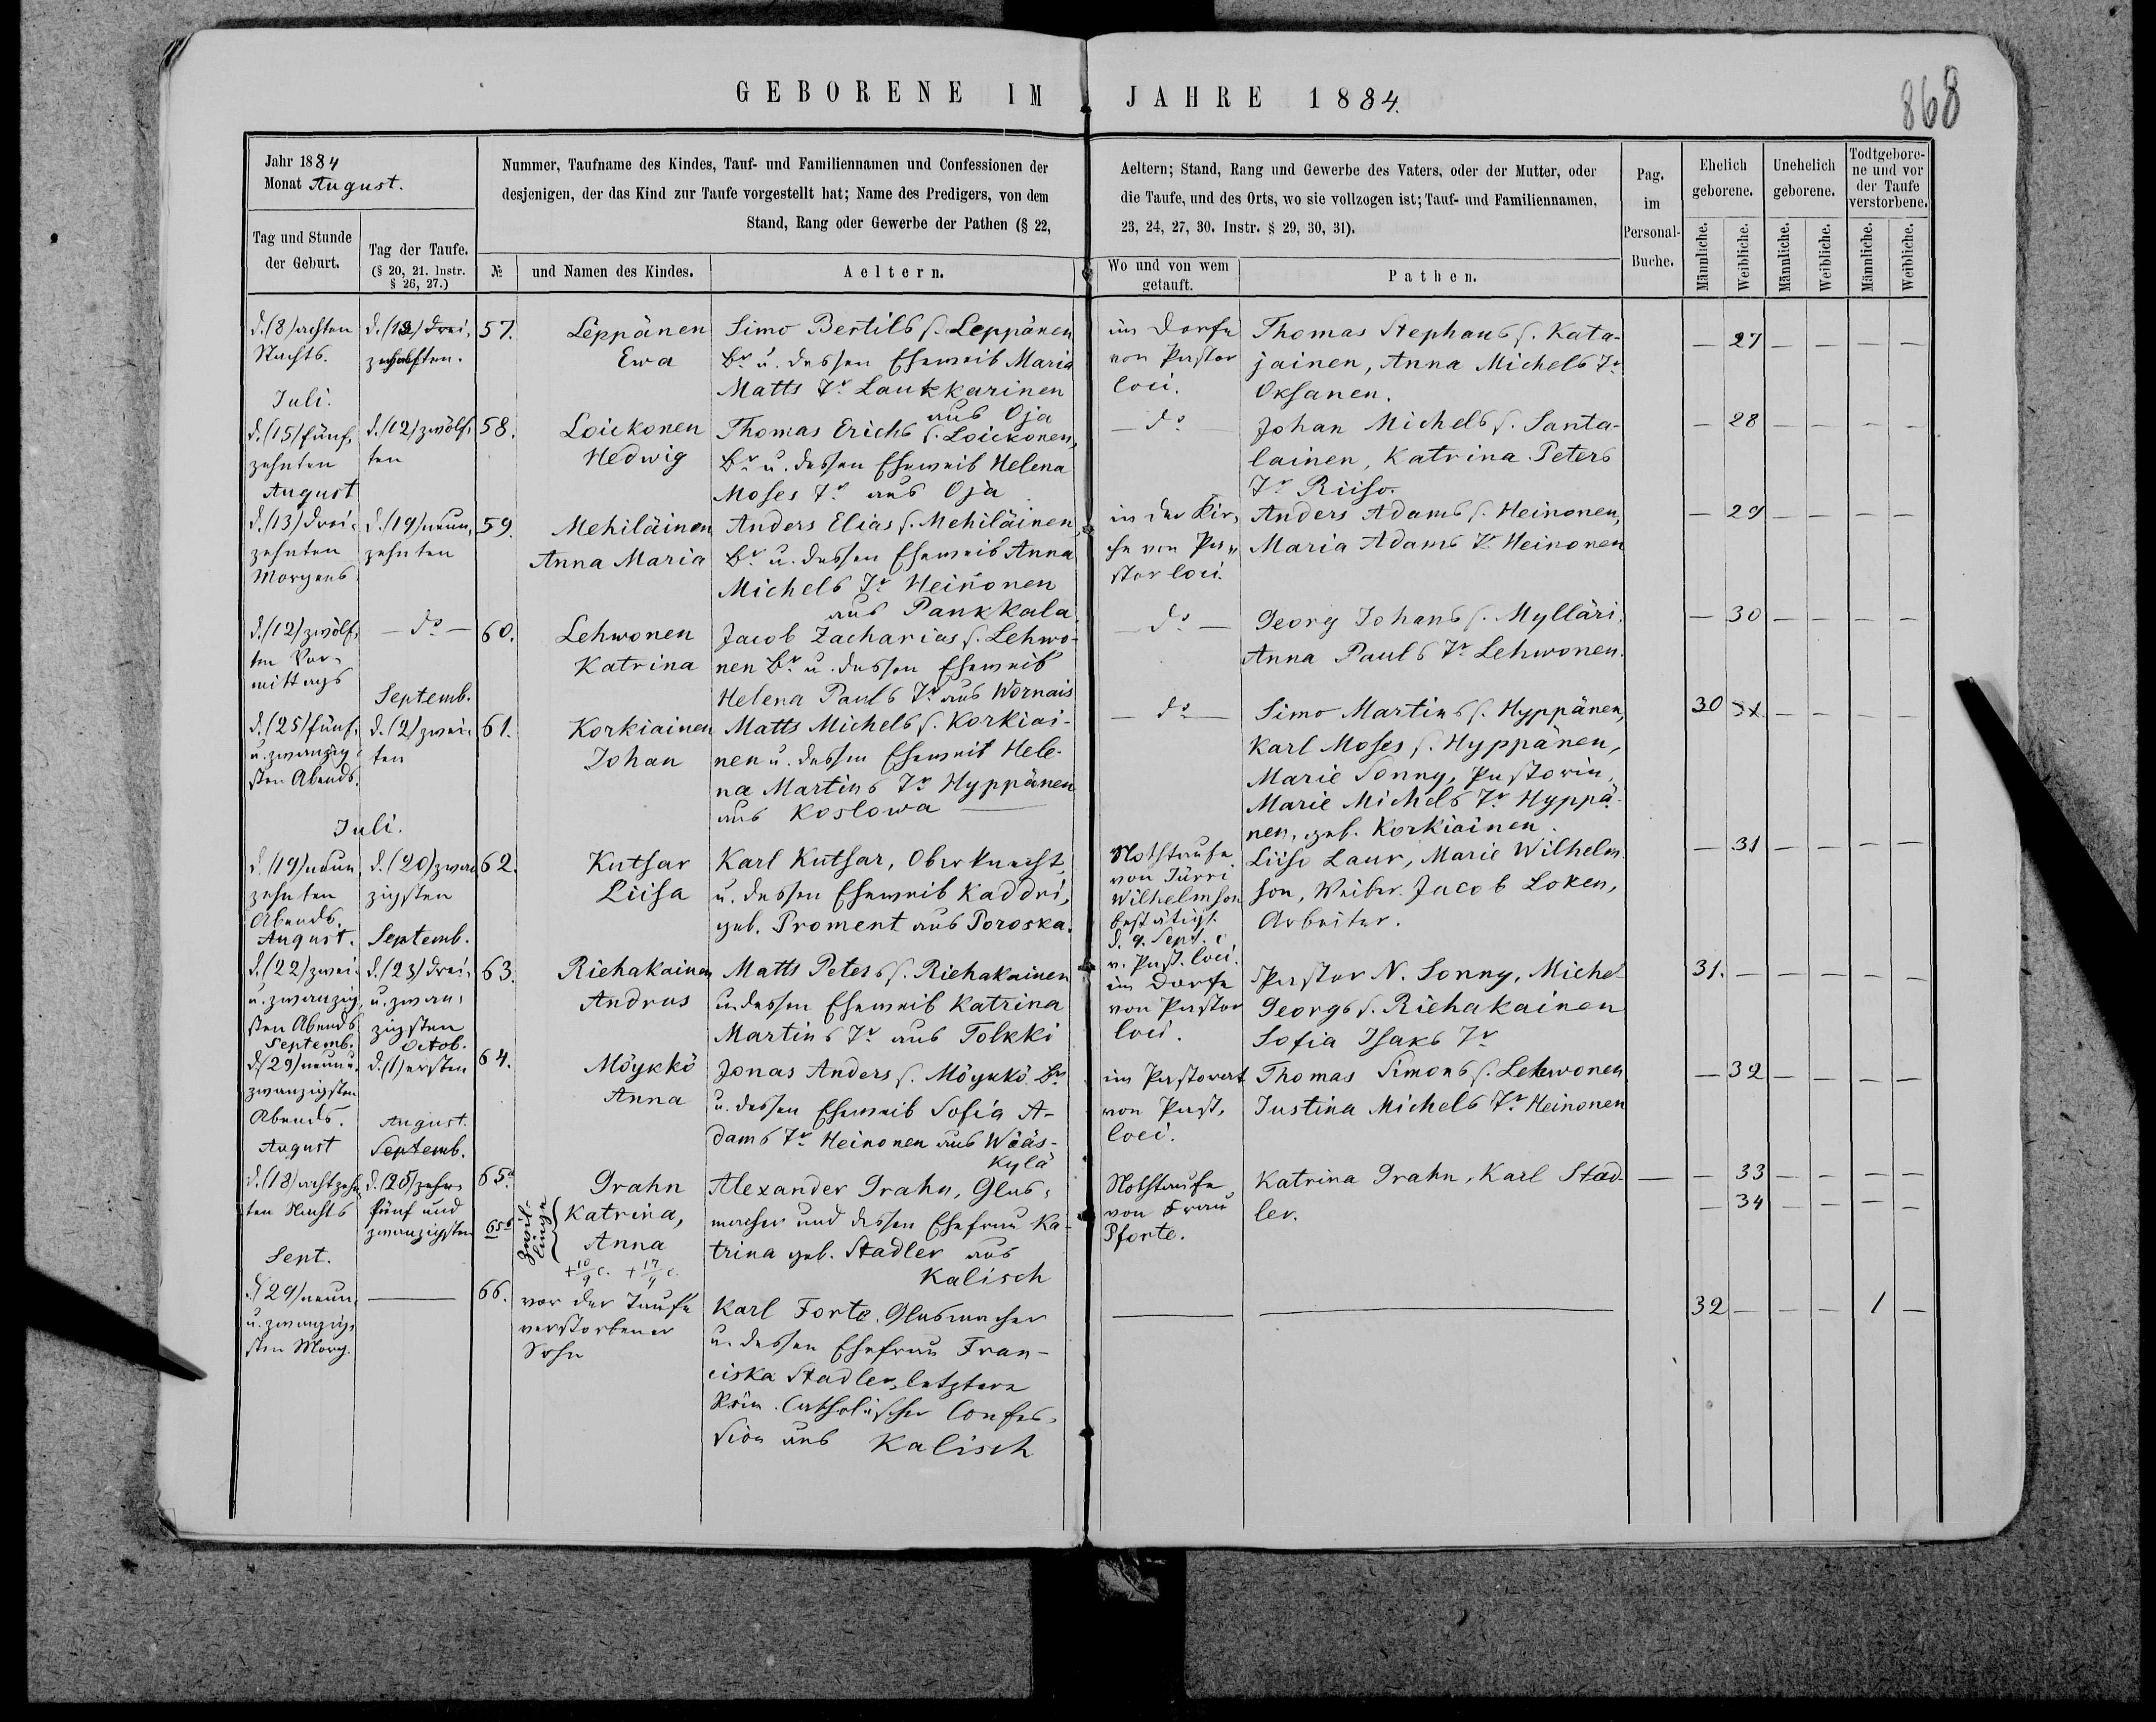 GEBORENE IM JAHRE 1884.
868
Jahr 1884
Monat August.
Nummer, Taufname des Kindes, Tauf- und Familiennamen und Confessionen der
desjenigen, der das Kind zur Taufe vorgestellt hat; Name des Predigers, von dem
Stand, Rang oder Gewerbe der Pathen (§ 22,
Aeltern; Stand, Rang und Gewerbe des Vaters, oder der Mutter, oder
die Taufe, und des Orts, wo sie vollzogen ist; Tauf- und Familiennamen,
23, 24, 27, 30. Instr. § 29, 30, 31).
Pag.
im
Personal-
Buche.
Ehelich
geborene.
Unehelich
geborene.
Todtgebore-
ne und vor
der Taufe
verstorbene.
Tag und Stunde
der Geburt.
Tag der Taufe.
(§ 20, 21. Instr.
§ 26, 27.)
№
und Namen des Kindes.
Aeltern.
Wo und von wem
getauft.
Pathen.
Männliche.
Weibliche.
Männliche.
Weibliche.
Männliche.
Weibliche.
d. (8) achten
Nachts.
d. (12) drei-
57.
Leppänen
Ewa
Simo Bertils s. Leppänen
Br. u. dessen Eheweib Maria
Matts Tr. Laukkarinen
aus Oja
im Dorfe
von Pastor
loci.
Thomas Stephans s. Kata-
jainen, Anna Michels Tr.
Oksanen.
— 27 — — — —
Juli.
d. (15) fünf-
zehnten
d. (12) zwölf-
ten
58.
Loickonen
Hedwig
Thomas Erichs s. Loickonen,
Br. u. dessen Eheweib Helena
Moses Tr. aus Oja
— do —
Johan Michels s. Santa-
lainen, Katrina Peters
Tr. Riiso.
— 28 — — — —
August
d. (13) drei-
zehnten
Morgens
d. (19) neun-
zehnten
59.
Mehiläinen
Anna Maria
Anders Elias s. Mehiläinen,
Br. u. dessen Eheweib Anna
Michels Tr. Heinonen
aus Pankkala
in der Kir-
che von Pa-
stor loci.
Anders Adams s. Heinonen,
Maria Adams Tr. Heinonen
— 29 — — — —
d. (12) zwölf-
ten Vor-
mittags
— do —
60.
Lehwonen
Katrina
Jacob Zacharias s. Lehwo-
nen Br. u. dessen Eheweib
Helena Pauls Tr. aus Wornais
— do —
Georg Johans s. Mylläri,
Anna Pauls Tr. Lehwonen.
— 30 — — — —
Septemb.
d. (25) fünf-
u. zwanzig-
sten Abends.
d. (2) zwei-
ten
61.
Korkiainen
Johan
Matts Michels s. Korkiai-
nen u. dessen Eheweib Hele-
na Martins Tr. Hyppänen
aus Koslowa —
— do —
Simo Martins s. Hyppänen,
Karl Moses s. Hyppänen,
Marie Sonny, Pastorin,
Marie Michels Tr. Hyppä-
nen, geb. Korkiainen.
30 — — — —
Juli.
d. (19) neun-
zehnten
Abends.
d. (20) zwan-
zigsten
62.
Kutsar
Liisa
Karl Kutsar, Oberknecht,
u. dessen Eheweib Kaddri,
geb. Proment aus Poroska.
Nothtaufe
von Jürri
Wilhelmson
bestätigt
d. 9. Sept. c
v. Past. loci.
Liiso Laur, Marie Wilhelm-
son, Weiber. Jacob Loken,
Arbeiter.
— 31 — — — —
August.
Septemb.
d. (22) zwei-
u. zwanzig-
sten Abends
d. (23) drei-
u. zwan-
zigsten
63.
Riehakainen
Andrus
Matts Peters s. Riehakainen
u. dessen Eheweib Katrina
Martins Tr. aus Tolkki
im Dorfe
von Pastor
loci.
Pastor N. Sonny, Michel
Georgs s. Riehakainen
Sofia Isaks Tr.
31. — — — — —
Septemb.
Octob.
d. (29) neun u.
zwanzigsten
Abends.
d. (1) ersten
64.
Möykkö
Anna
Jonas Anders s. Möykkö Br.
u. dessen Eheweib Sofia A-
dams Tr. Heinonen aus Wääs-
kylä
im Pastorat
von Past.
loci.
Thomas Simons s. Lehwonen
Justina Michels Tr. Heinonen
— 32 — — — —
August
August.
Septemb.
d. (18) achtzehn-
ten Nachts
d. (25) zehn-
fünf und
zwanzigsten
65a
65b
Zwil-
linge
Grahn
Katrina,
Anna
+ 10/9 c. + 17/9 c.
Alexander Grahn, Glas-
macher und dessen Ehefrau Ka-
trina geb. Stadler aus
Kalisch
Nothtaufe
von Frau
Pforte.
Katrina Grahn, Karl Stad-
ler.
— — 33 — — — —
— 34 — — —
Sept.
d. (29) neun-
u. zwanzig-
sten Morg.
—
66.
vor der Taufe
verstorbener
Sohn
Karl Forte, Glasmacher
u. dessen Ehefrau Fran-
ciska Stadler, letztere
Röm. Catholischer Confes-
sion aus Kalisch
—
—
32 — — — 1 —